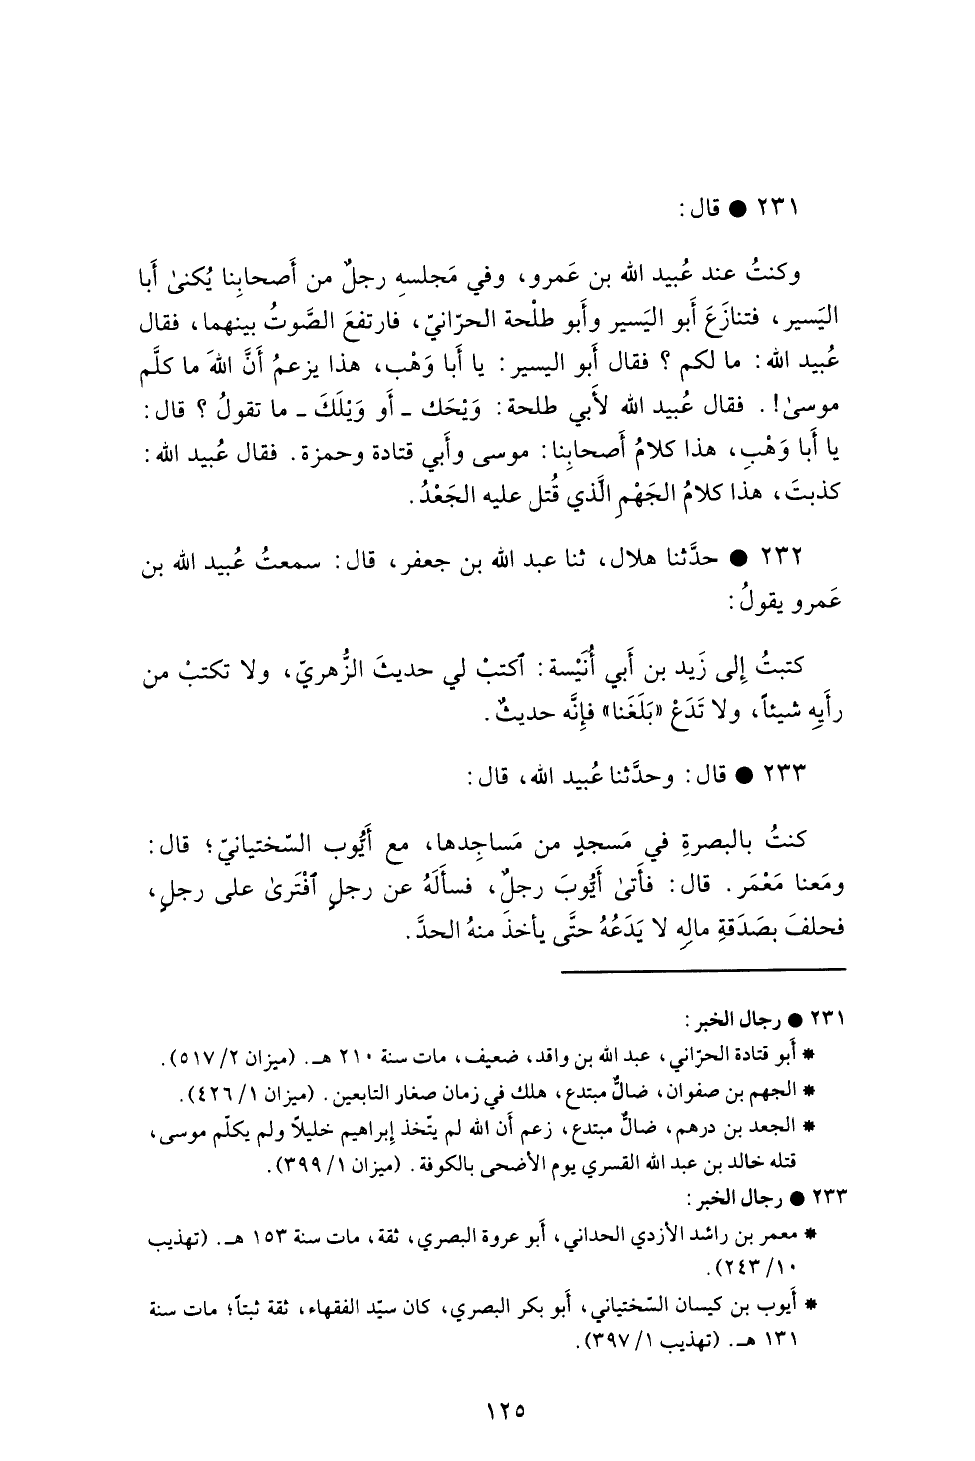 ٢٣١ ● قال :
وكنتُ عند عُبيد الله بن عَمرو، وفي مَجلسهِ رجلٌ من أَصحابِنا يُكنىٰ أَبا
اليَسير، فتنازَعَ أَبو اليَسير وأَبو طلْحة الحرّانيّ، فارتفعَ الصَّوتُ بينهما، فقال
عُبيد الله : ما لكم ؟ فقال أَبو اليسير : يا أَبا وَهْب، هذا يزعمُ أَنَّ اللهَ ما كلَّم
موسىٰ! . فقال عُبيد الله لأَبي طلحة : وَيْحَك ـ أَو وَيْلَكَ ـ ما تقولُ ؟ قال :
يا أَبا وَهْبِ، هذا كلامُ أَصحابِنا : موسى وأَبي قتادة وحمزة . فقال عُبيد الله :
كذبتَ، هذا كلامُ الجَهْمِ الَّذي قُتل عليه الجَعْدُ .
٢٣٢ ● حدَّثنا هلال، ثنا عبد الله بن جعفر، قال : سمعتُ عُبيد الله بن
عَمرو يقولُ :
كتبتُ إِلى زَيد بن أَبي أُنَيْسة : ٱكتبْ لي حديثَ الزُّهريّ، ولا تكتبْ من
رأَيِهِ شيئاً، ولا تَدَعْ «بَلَغَنا» فإِنَّه حديثٌ .
٢٣٣ ● قال : وحدَّثنا عُبيد الله، قال :
كنتُ بالبصرةِ في مَسجدٍ من مَساجِدها، مع أَيُّوب السّختيانيّ ؛ قال :
ومَعنا مَعْمَر . قال : فأَتىٰ أَيُّوبَ رجلٌ، فسأَلَهُ عن رجلٍ ٱفْتَرىٰ على رجلٍ،
فحلفَ بصَدَقةِ مالِهِ لا يَدَعُهُ حتَّى يأخذَ منهُ الحدَّ .
٢٣١ ● رجال الخبر :
* أَبو قتادة الحرّاني، عبد الله بن واقد، ضعيف، مات سنة ٢١٠ هـ . (ميزان ٢/ ٥١٧) .
* الجهم بن صفوان، ضالٌّ مبتدع، هلك في زمان صغار التابعين . (ميزان ١/ ٤٢٦) .
* الجعد بن درهم، ضالٌّ مبتدع، زعم أَن الله لم يتّخذ إِبراهيم خليلاً ولم يكلّم موسى،
قتله خالد بن عبد الله القسري يوم الأضحى بالكوفة . (ميزان ١/ ٣٩٩) .
٢٣٣ ● رجال الخبر :
* معمر بن راشد الأزدي الحداني، أَبو عروة البصري، ثقة، مات سنة ١٥٣ هـ . (تهذيب
١٠/ ٢٤٣) .
* أَيوب بن كيسان السّختياني، أَبو بكر البصري، كان سيّد الفقهاء، ثقة ثبتاً؛ مات سنة
١٣١ هـ . (تهذيب ١/ ٣٩٧) .
١٢٥